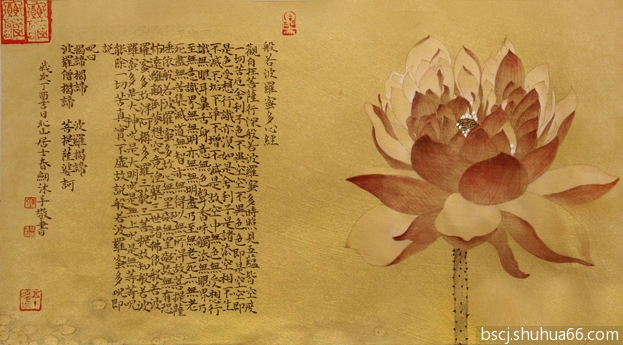 般若波羅蜜多心經
觀自在菩薩行深般若波羅蜜多時照見五蘊皆空度
一切苦厄舍利子色不異空空不異色色即是空空即
是色受想行識亦復如是舍利子是諸法空相不生
不滅不垢不淨不增不減是故空中無色無受想行
識無眼耳鼻舌身意無色聲香味觸法無眼界乃
至無意識界無無明亦無無明盡乃至無老死亦無老
死盡無苦集滅道無智亦無得以無所得故菩提薩
埵依般若波羅蜜多故心無罣礙無罣礙故無有恐
怖遠離顛倒夢想究竟涅槃三世諸佛依般若波
羅蜜多故得阿耨多羅三藐三菩提故知般若波
羅蜜多是大神咒是大明咒是無上咒是無等等咒
能除一切苦真實不虛故說般若波羅蜜多咒即
說
咒曰
揭諦揭諦 波羅揭諦
波羅僧揭諦 菩提薩婆訶
歲次丁酉吉日北山居士春沐手敬書
bscj.shuhua66.com